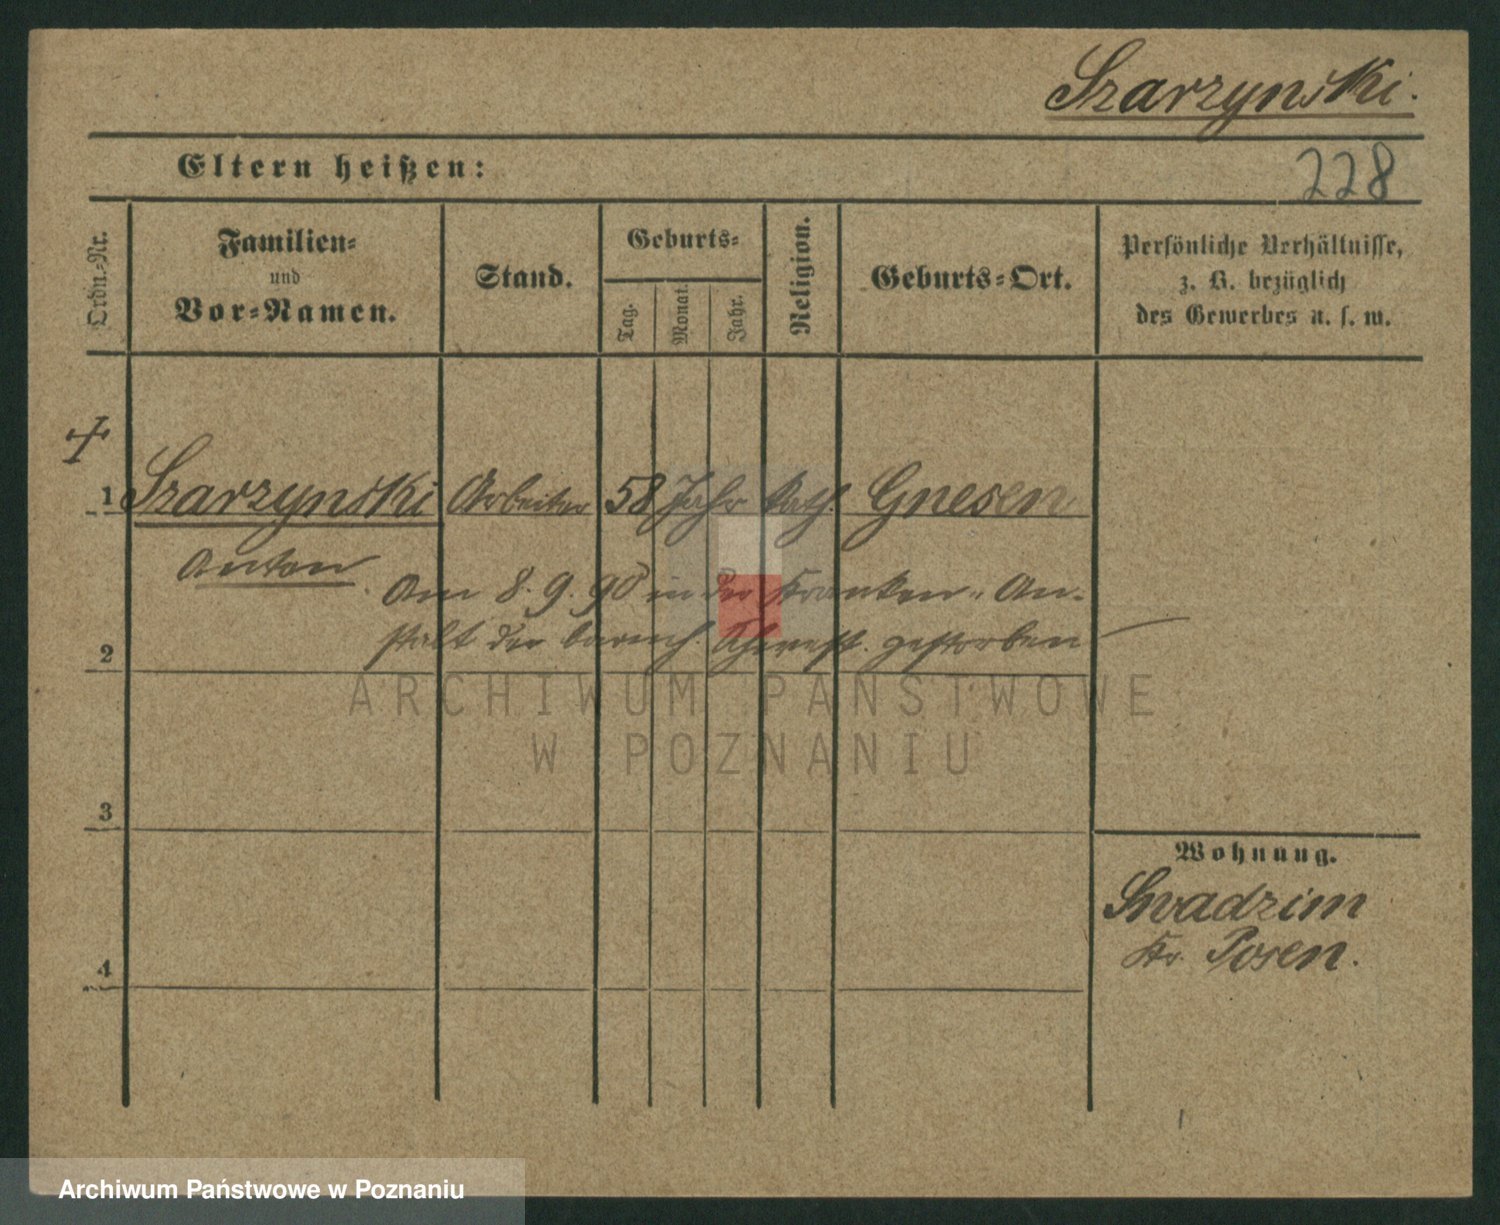 Szarzynski.
Eltern heißen:
228
Ordn.-Nr.
Familien-
und
Vor-Namen.
Stand.
Geburts-
Tag.
Monat.
Jahr.
Religion.
Geburts-Ort.
Persönliche Verhältnisse,
z. B. bezüglich
des Gewerbes u. s. w.
1 Szarzynski Arbeiter 58 Jahr kath. Gnesen
Anton
Am 8. 9. 90 in der Kranken-An-
stalt der barmh. Schwest. gestorben
2
ARCHIWUM PAŃSTWOWE
W POZNANIU
3
Wohnung.
Swadzim
Kr. Posen.
4
Archiwum Państwowe w Poznaniu